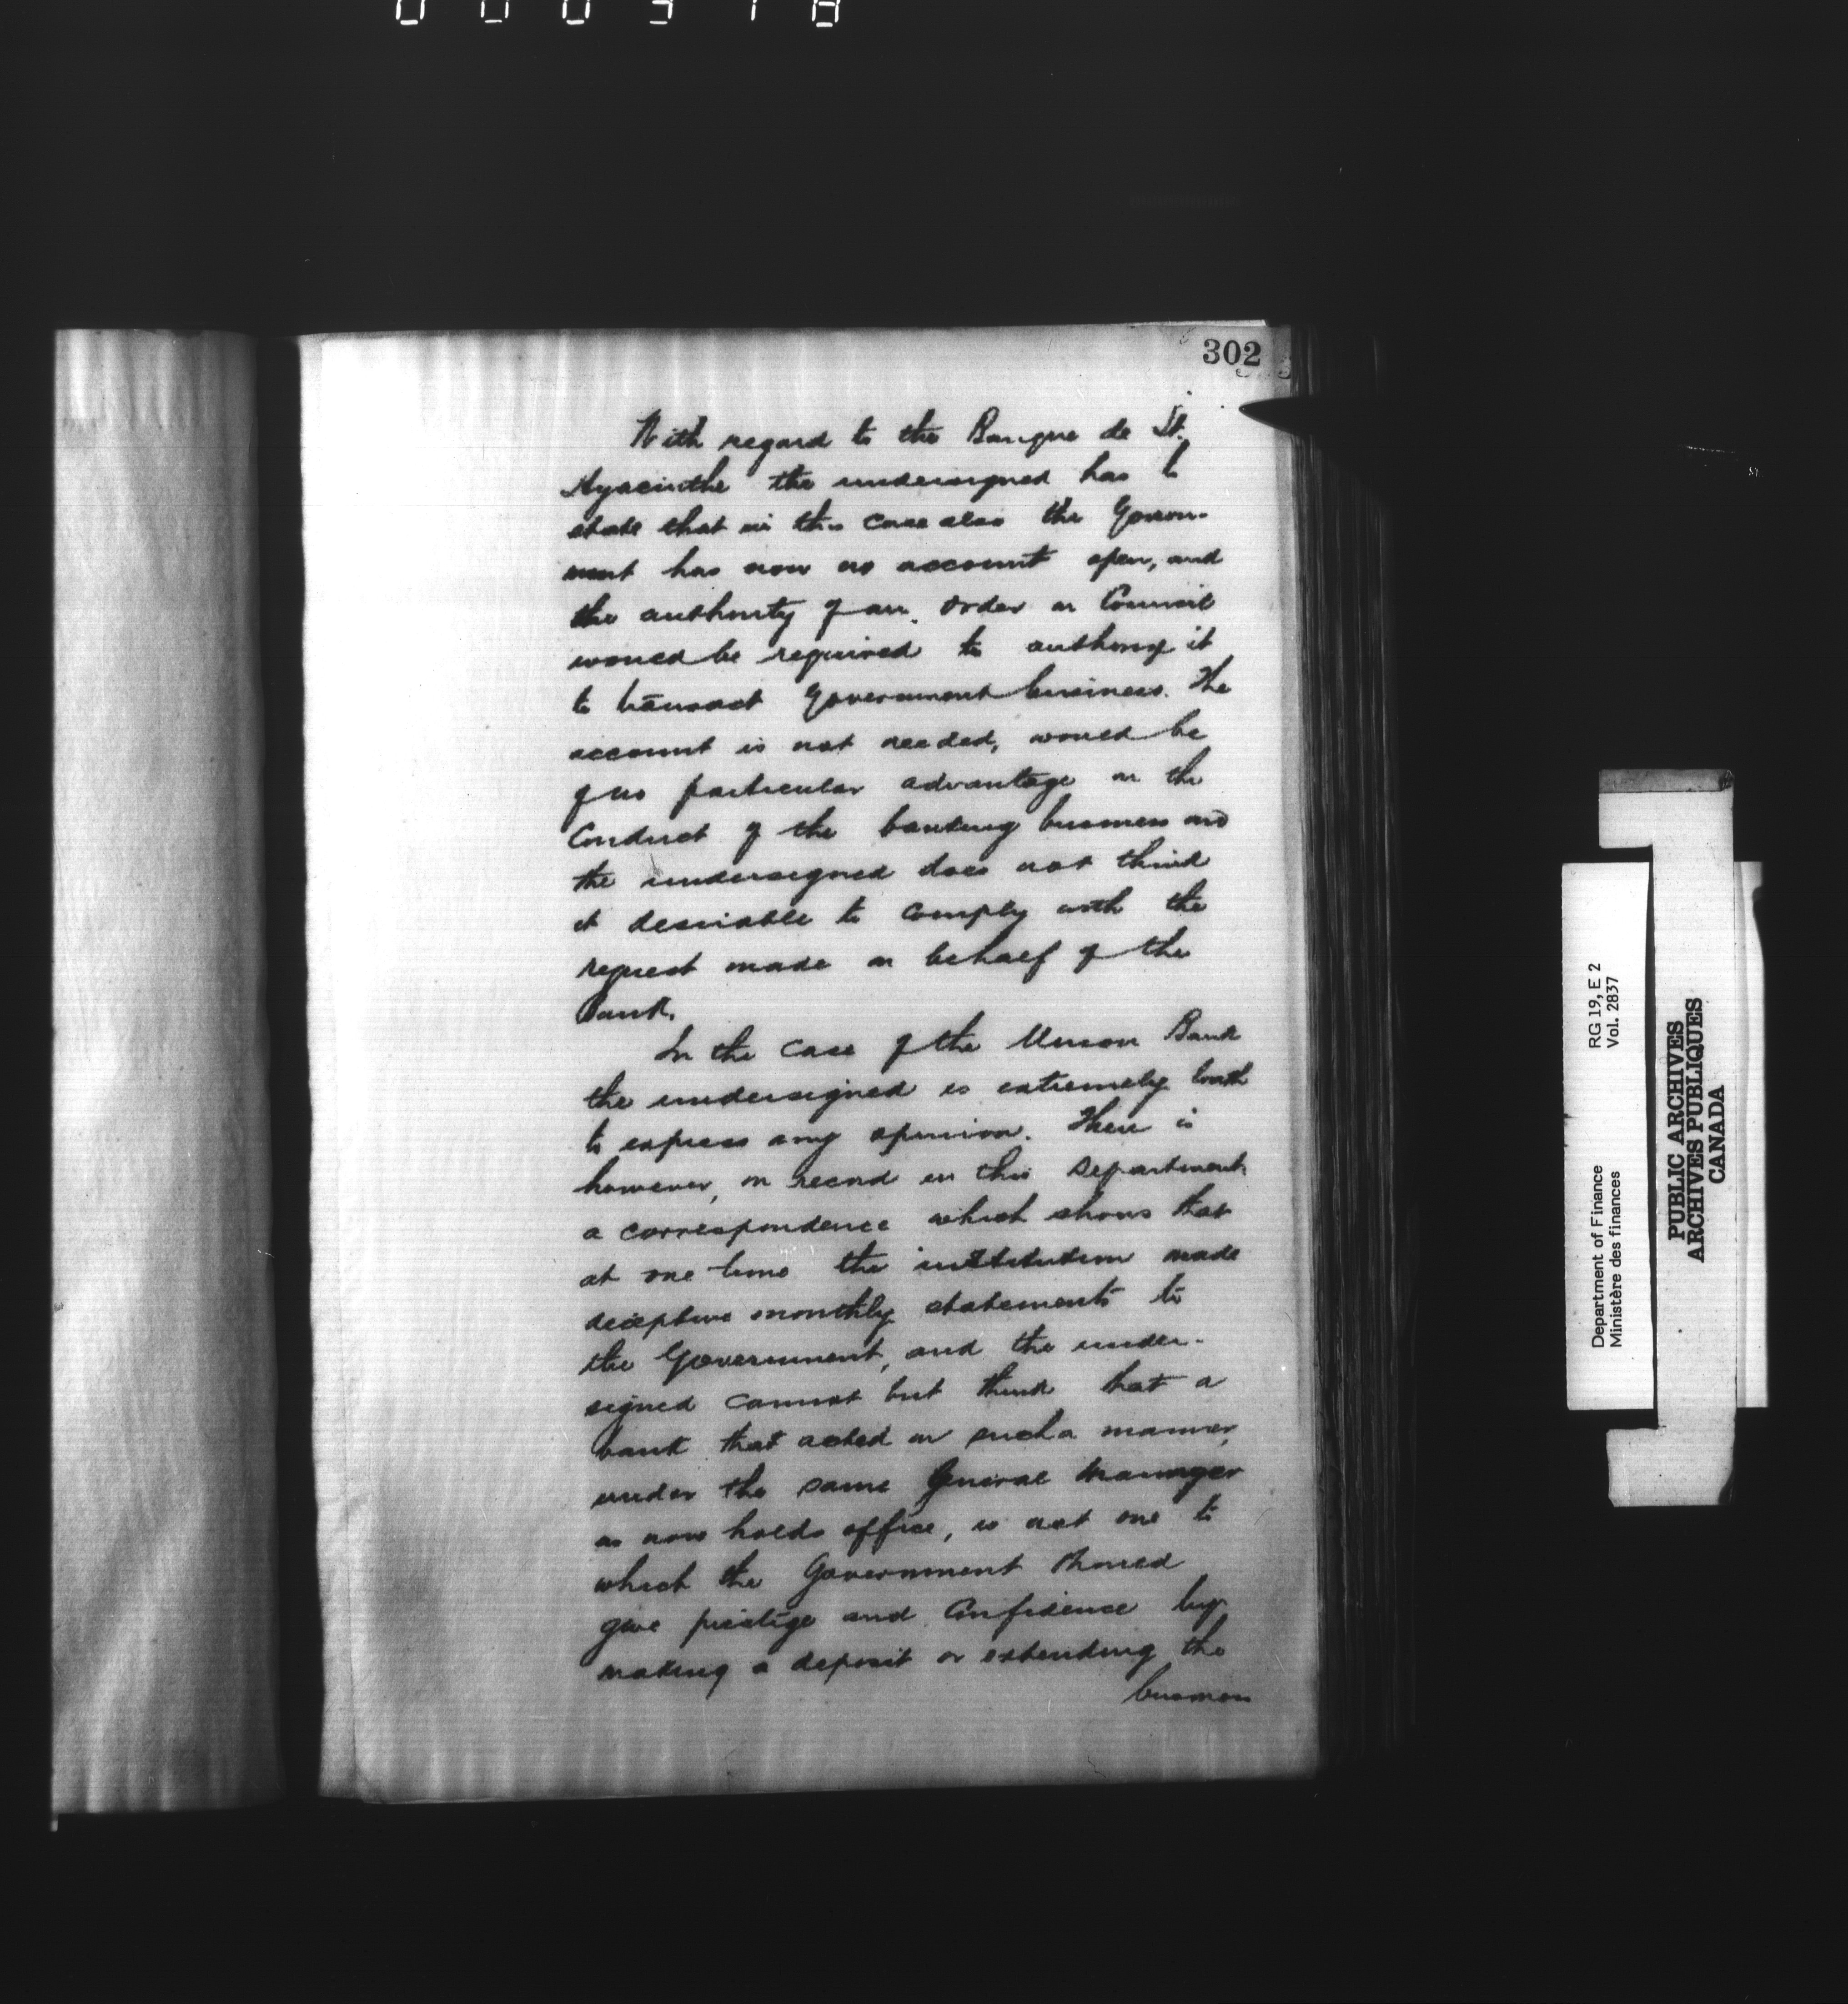 302
With regard to the Banque de St.
Hyacinthe the undersigned has to
state that in this case also the Govern-
ment has now no account open, and
the authority of an Order in Council
would be required to authorize it
to transact Government business. The
account is not needed, would be
of no particular advantage in the
Conduct of the banking business and
the undersigned does not think
it desirable to comply with the
request made on behalf of the
Bank.
In the case of the Union Bank
the undersigned is extremely loath
to express any opinion. There is
however, on record in this Department
a correspondence which shows that
at one time the institution made
deceptive monthly statements to
the Government, and the under-
signed cannot but think that a
bank that acted in such a manner,
under the same General Manager
as now holds office, is not one to
which the Government should
give prestige and Confidence by
making a deposit or extending the
business
Department of Finance RG 19, E 2
Ministère des finances Vol. 2837
PUBLIC ARCHIVES
ARCHIVES PUBLIQUES
CANADA